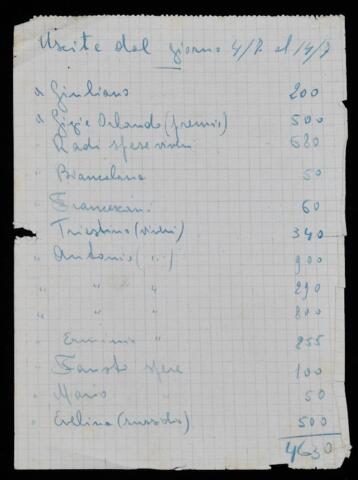 Uscite dal giorno 4/7 al 14/7
a Giuliano 200
a Gigi e Orlando (premio) 500
" Radi spese viveri 680
" 50
" Francescani 60
" Triestino (viveri) 340
" Antonio ( " ) 900
" " " 290
" " " 800
" Erminio " 255
" Fausto spese 100
" Mario 50
" Evelina (sussidio) 500
4630